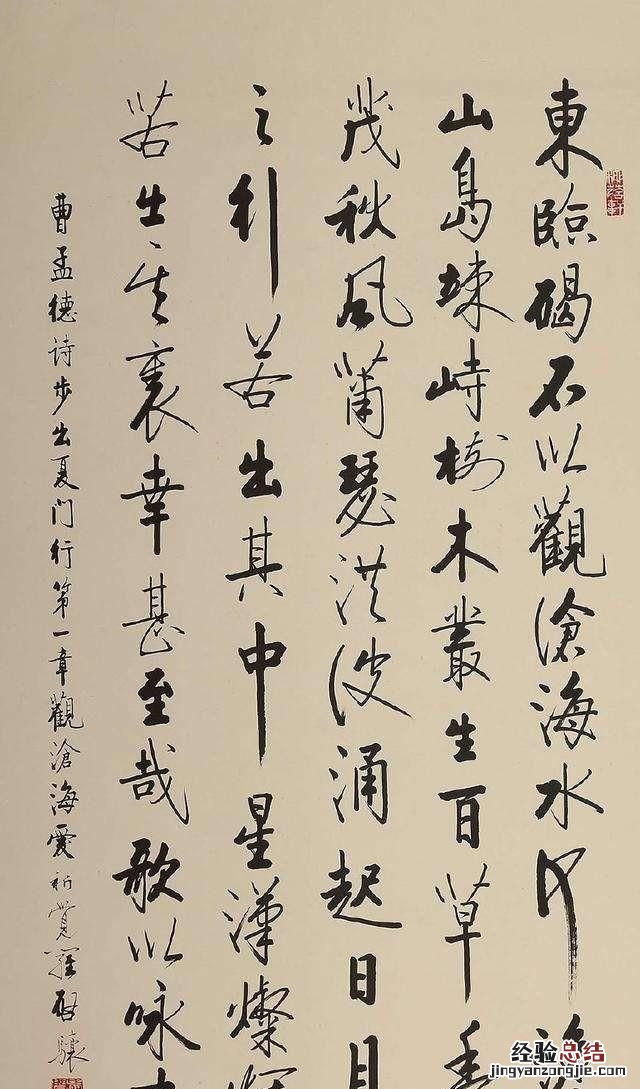 東臨碣石以觀滄海水何澹
山島竦峙樹木叢生百草丰
茂秋風蕭瑟洪波涌起日月
之行若出其中星漢燦爛
若出其裏幸甚至哉歌以咏
曹孟德诗步出夏门行第一章觀滄海愛新覺羅啟驤
经验总结
jingyanzongjie.com